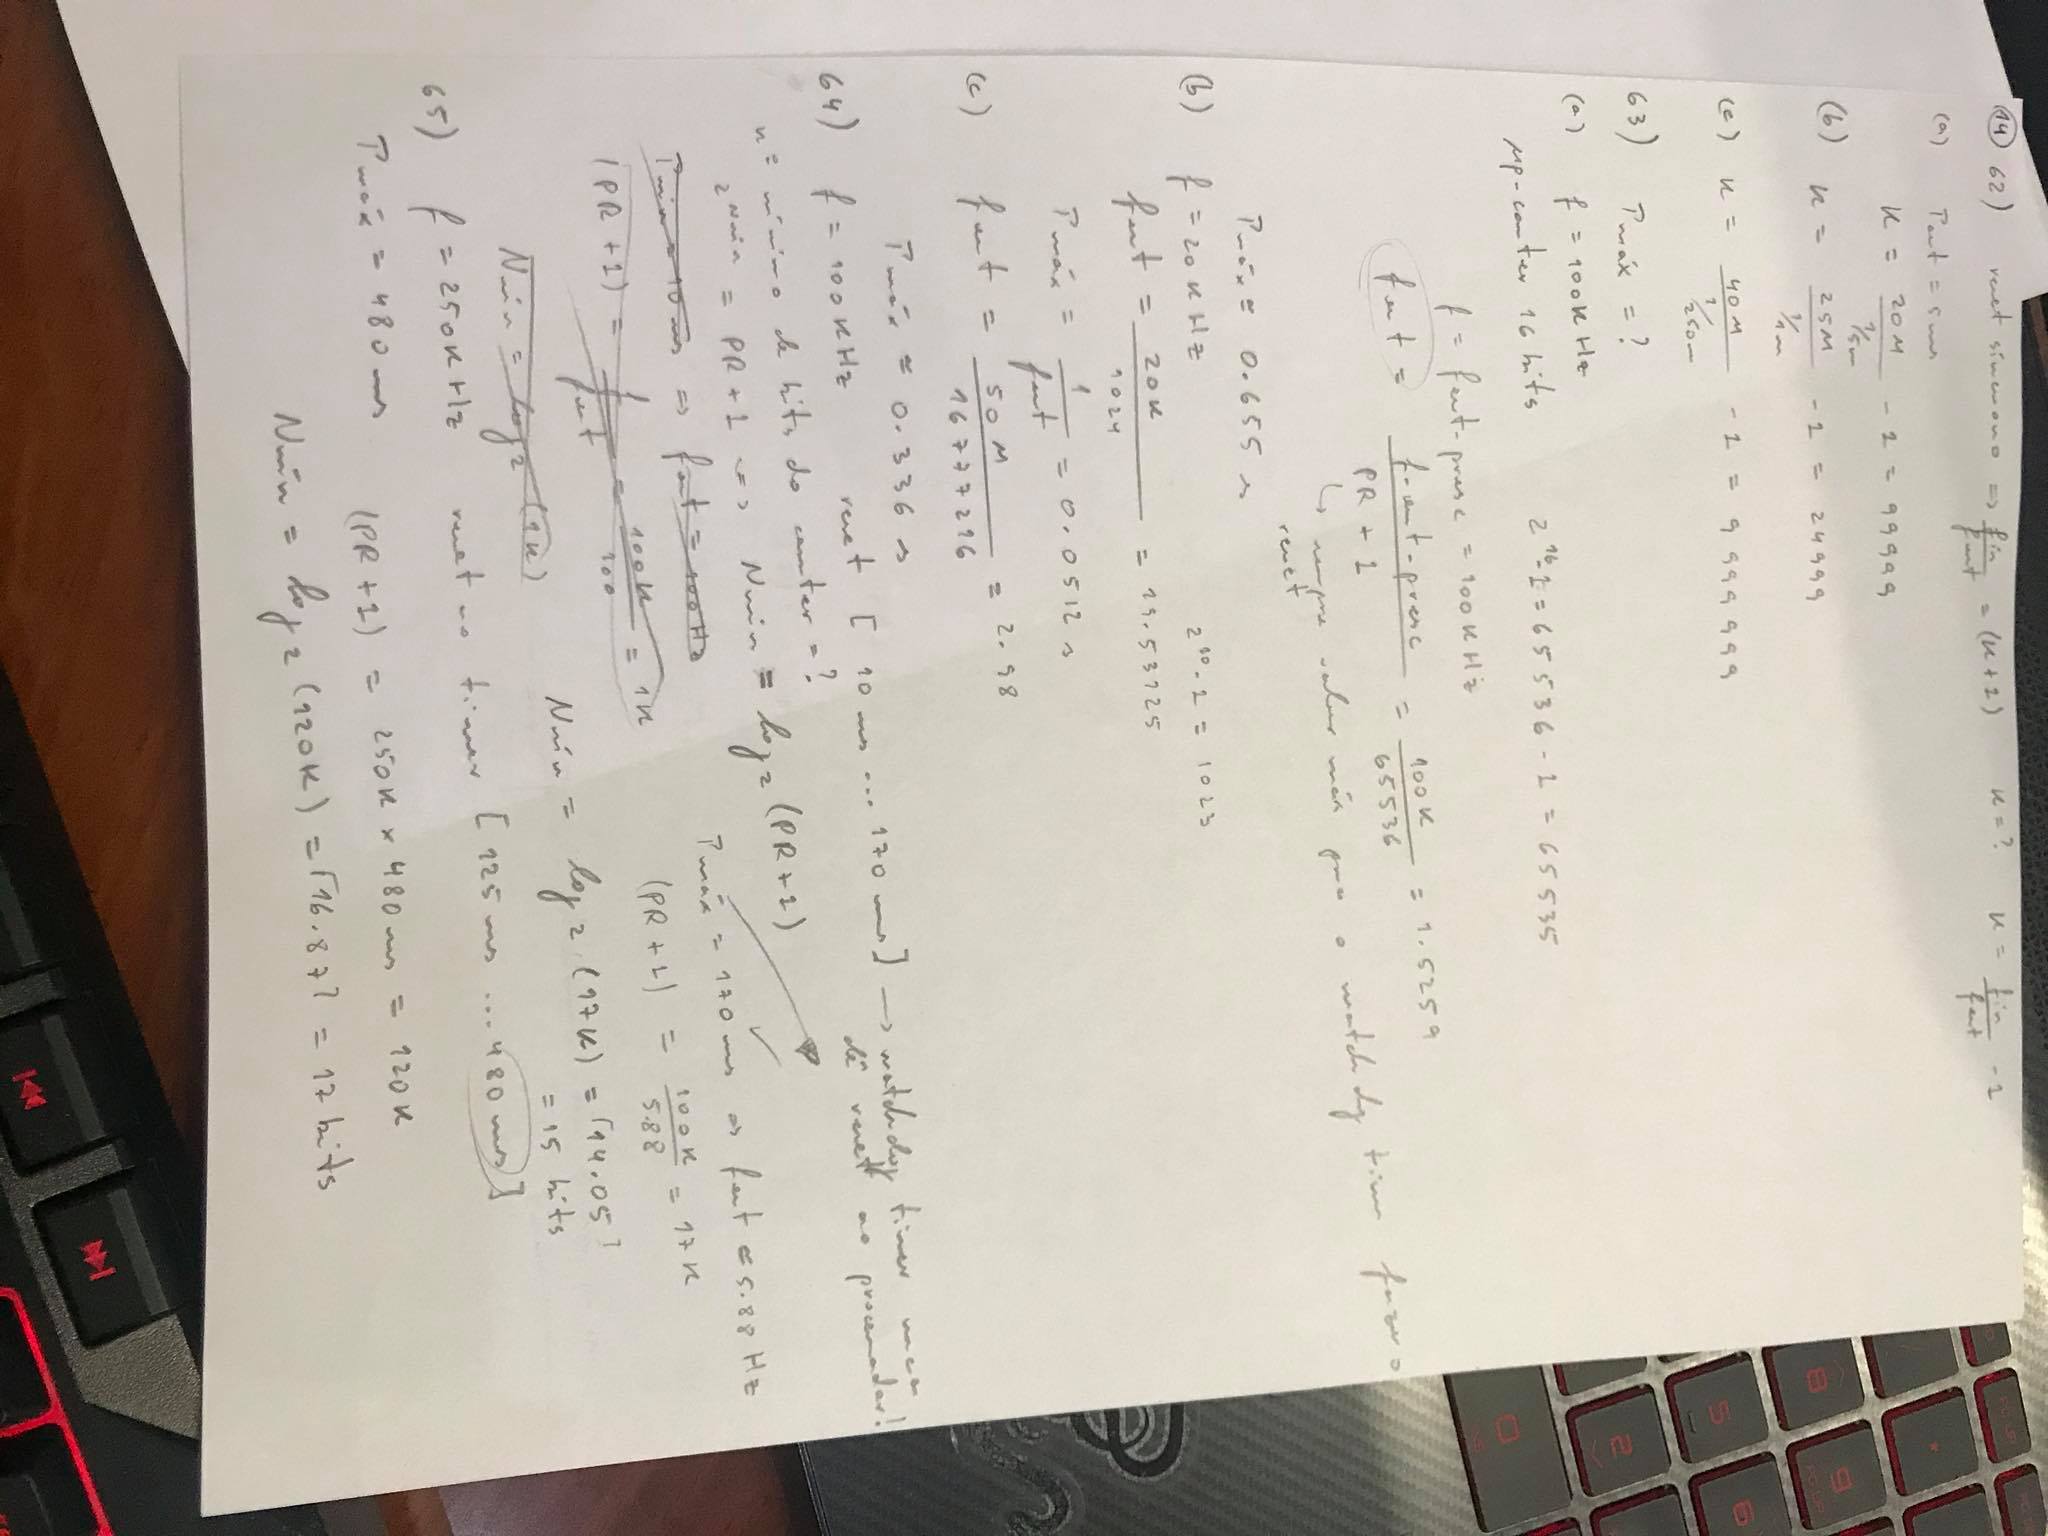 (14) 62) reset síncrono => fin/fout = (K+1) K=? K = fin/fout - 1
(a) Tout = 5ms
K = 20M / 1/5m - 1 = 99999
(b) K = 25M / 1/1m - 1 = 24999
(c) K = 40M / 1/250m - 1 = 9 999 999
63) Tmáx = ?
(a) f = 100KHz
up-conter 16 bits 2^16-1 = 65536 - 1 = 65535
f = fout-presc = 100KHz
fout = f-out-presc / PR + 1 = 100K / 65536 = 1.5259
↳ sempre valor máx para o watchdog timer fazer o
reset
Tmáx ≃ 0.655 s
(b) f = 20KHz 2^10 - 1 = 1023
fout = 20K / 1024 = 19.53125
Tmáx = 1 / fout = 0.0512 s
(c) fout = 50M / 16777216 = 2.98
Tmáx ≃ 0.336 s
64) f = 100KHz reset [10 ms ... 170 ms] → watchdog timer nunca
dê reset ao processador!
nº mínimo de bits do counter = ?
2^Nmin = PR+1 <=> Nmin = log2 (PR+1)
Tmin = 10 ms => fout = 100Hz
(PR+1) = f / fout = 100K / 100 = 1K
Nmin = log2 (1K)
Tmáx = 170 ms => fout ≃ 5.88 Hz ✓
(PR+1) = 100K / 5.88 = 17K
Nmin = log2 (17K) = ⌈14.05⌉
= 15 bits
65) f = 250KHz reset no timer [125 ms ... 480 ms]
Tmáx = 480 ms (PR+1) = 250K × 480 ms = 120K
Nmin = log2 (120K) = ⌈16.87⌉ = 17 bits
PG UP
8
9
PG UP
5
6
2
0